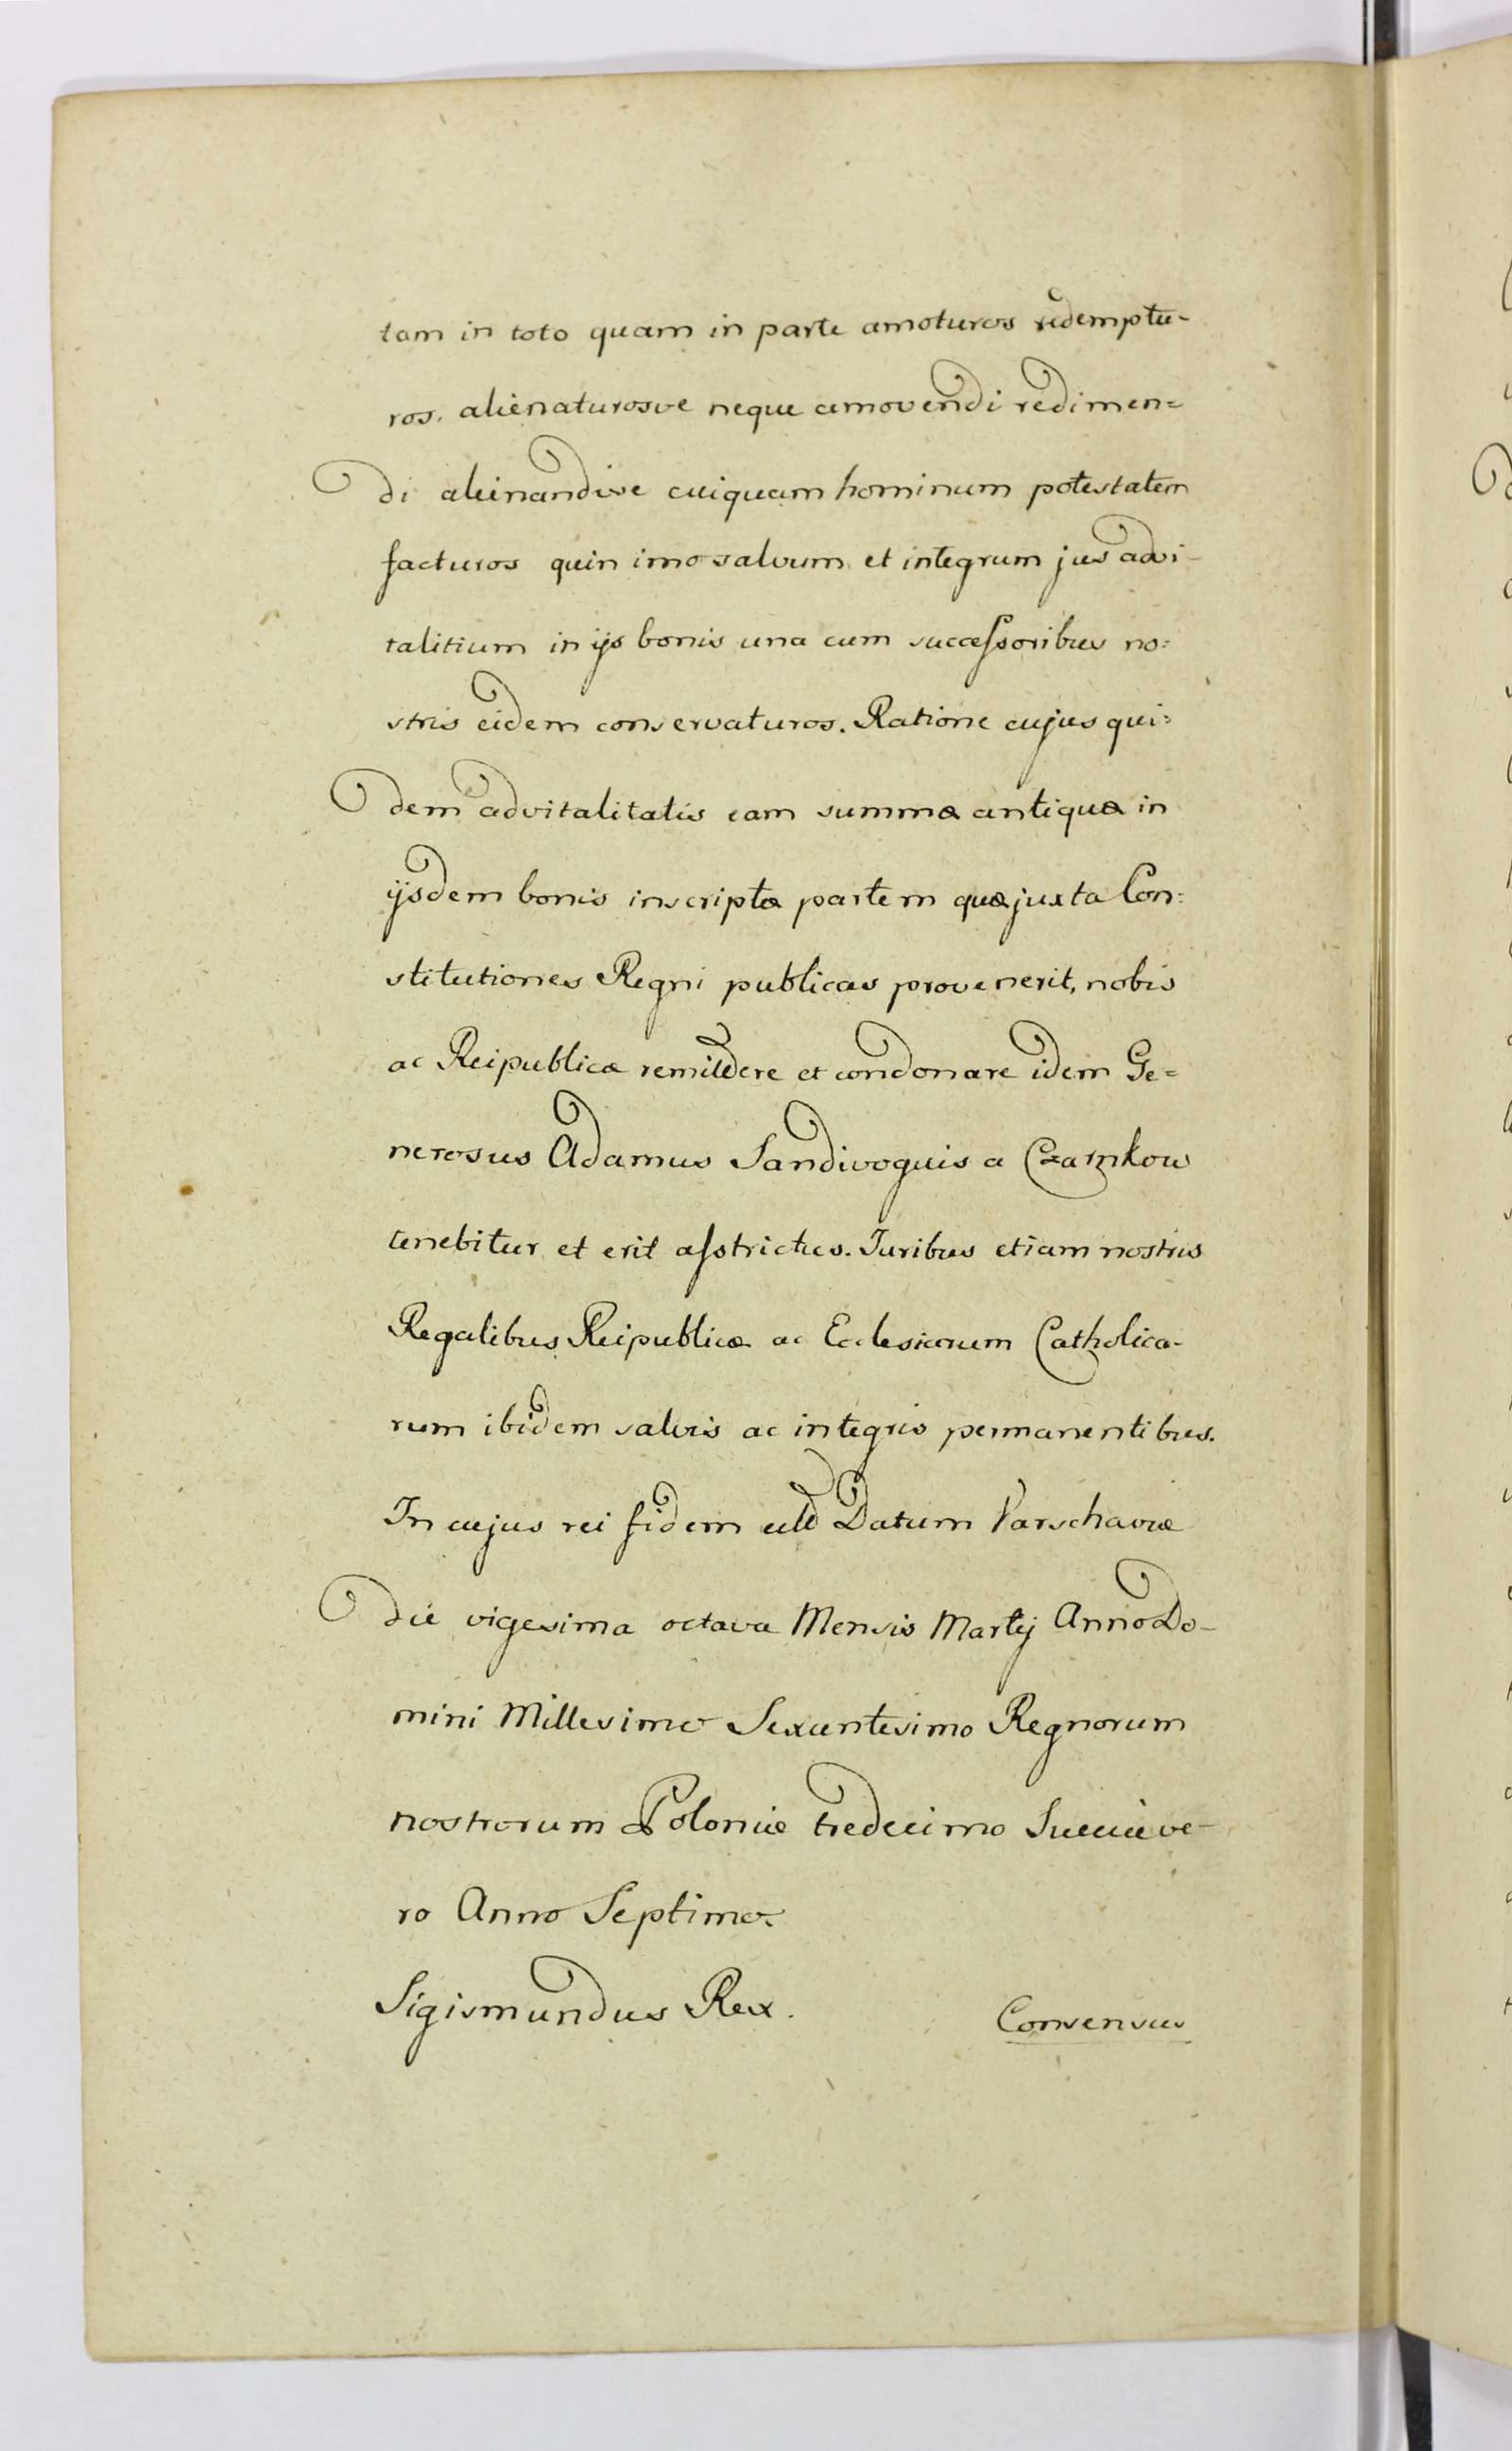 tam in toto quam in parte amoturos redemptu-
ros. alienaturosve neque amovendi redimen=
di aleinandive cuiquam hominum potestatem
facturos quin imo salvum et integrum jus advi-
talitium in ijs bonis una cum successoribus no=
stris eidem conservaturos. Ratione cujus qui=
dem advitalitatis eam summæ antiquæ in
ijsdem bonis inscriptæ partem quæ juxta Con=
stitutiones Regni publicas provenerit, nobis
ac Reipublicæ remittere et condonare idem Ge=
nerosus Adamus Sandivoguis a Czarnkow
tenebitur et erit asstrictus. Juribus etiam nostris
Regalibus Reipublicæ ac Ecclesiarum Catholica-
rum ibidem salvis ac integris permanentibus.
In cujus rei fidem Datum Varschaviæ
die vigesima octava Mensis Martij Anno Do-
mini Millesimo Sexentesimo Regnorum
nostrorum Poloniæ tredecimo Sueciæ ve-
ro Anno Septimo.
Sigismundus Rex.
Consensus